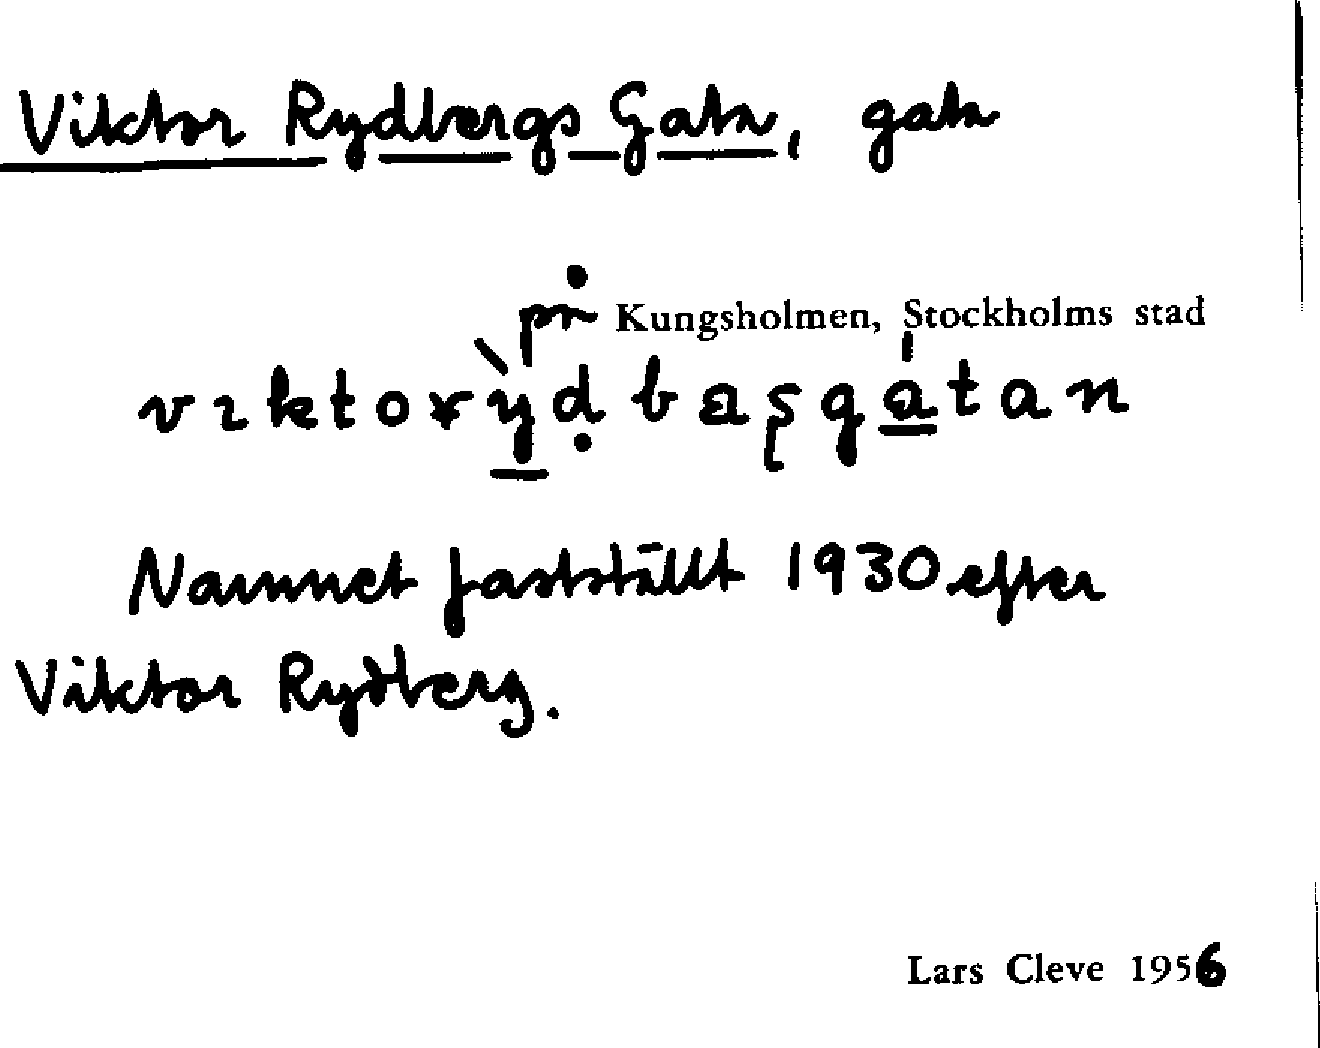 Viktor Rydbergs Gata, gata
på Kungsholmen, Stockholms stad
vɪktorỳḍbaʂgatan
Namnet fastställt 1930 efter
Viktor Rydberg.
Lars Cleve 1956